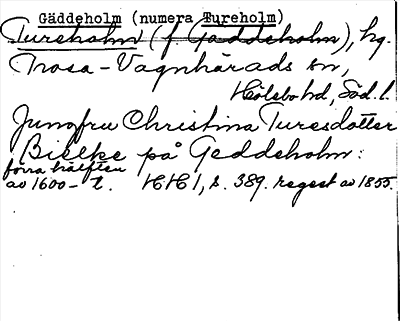 Gäddeholm (numera Tureholm)
Tureholm (f Gäddeholm), hg.
Trosa-Vagnhärads sn,
Hölebo hd, Söd. l.
Jungfru Christina Turesdotter
Bielke på Geddeholm:
förra hälften
av 1600-t. HH 1, s. 389. regest av 1855.